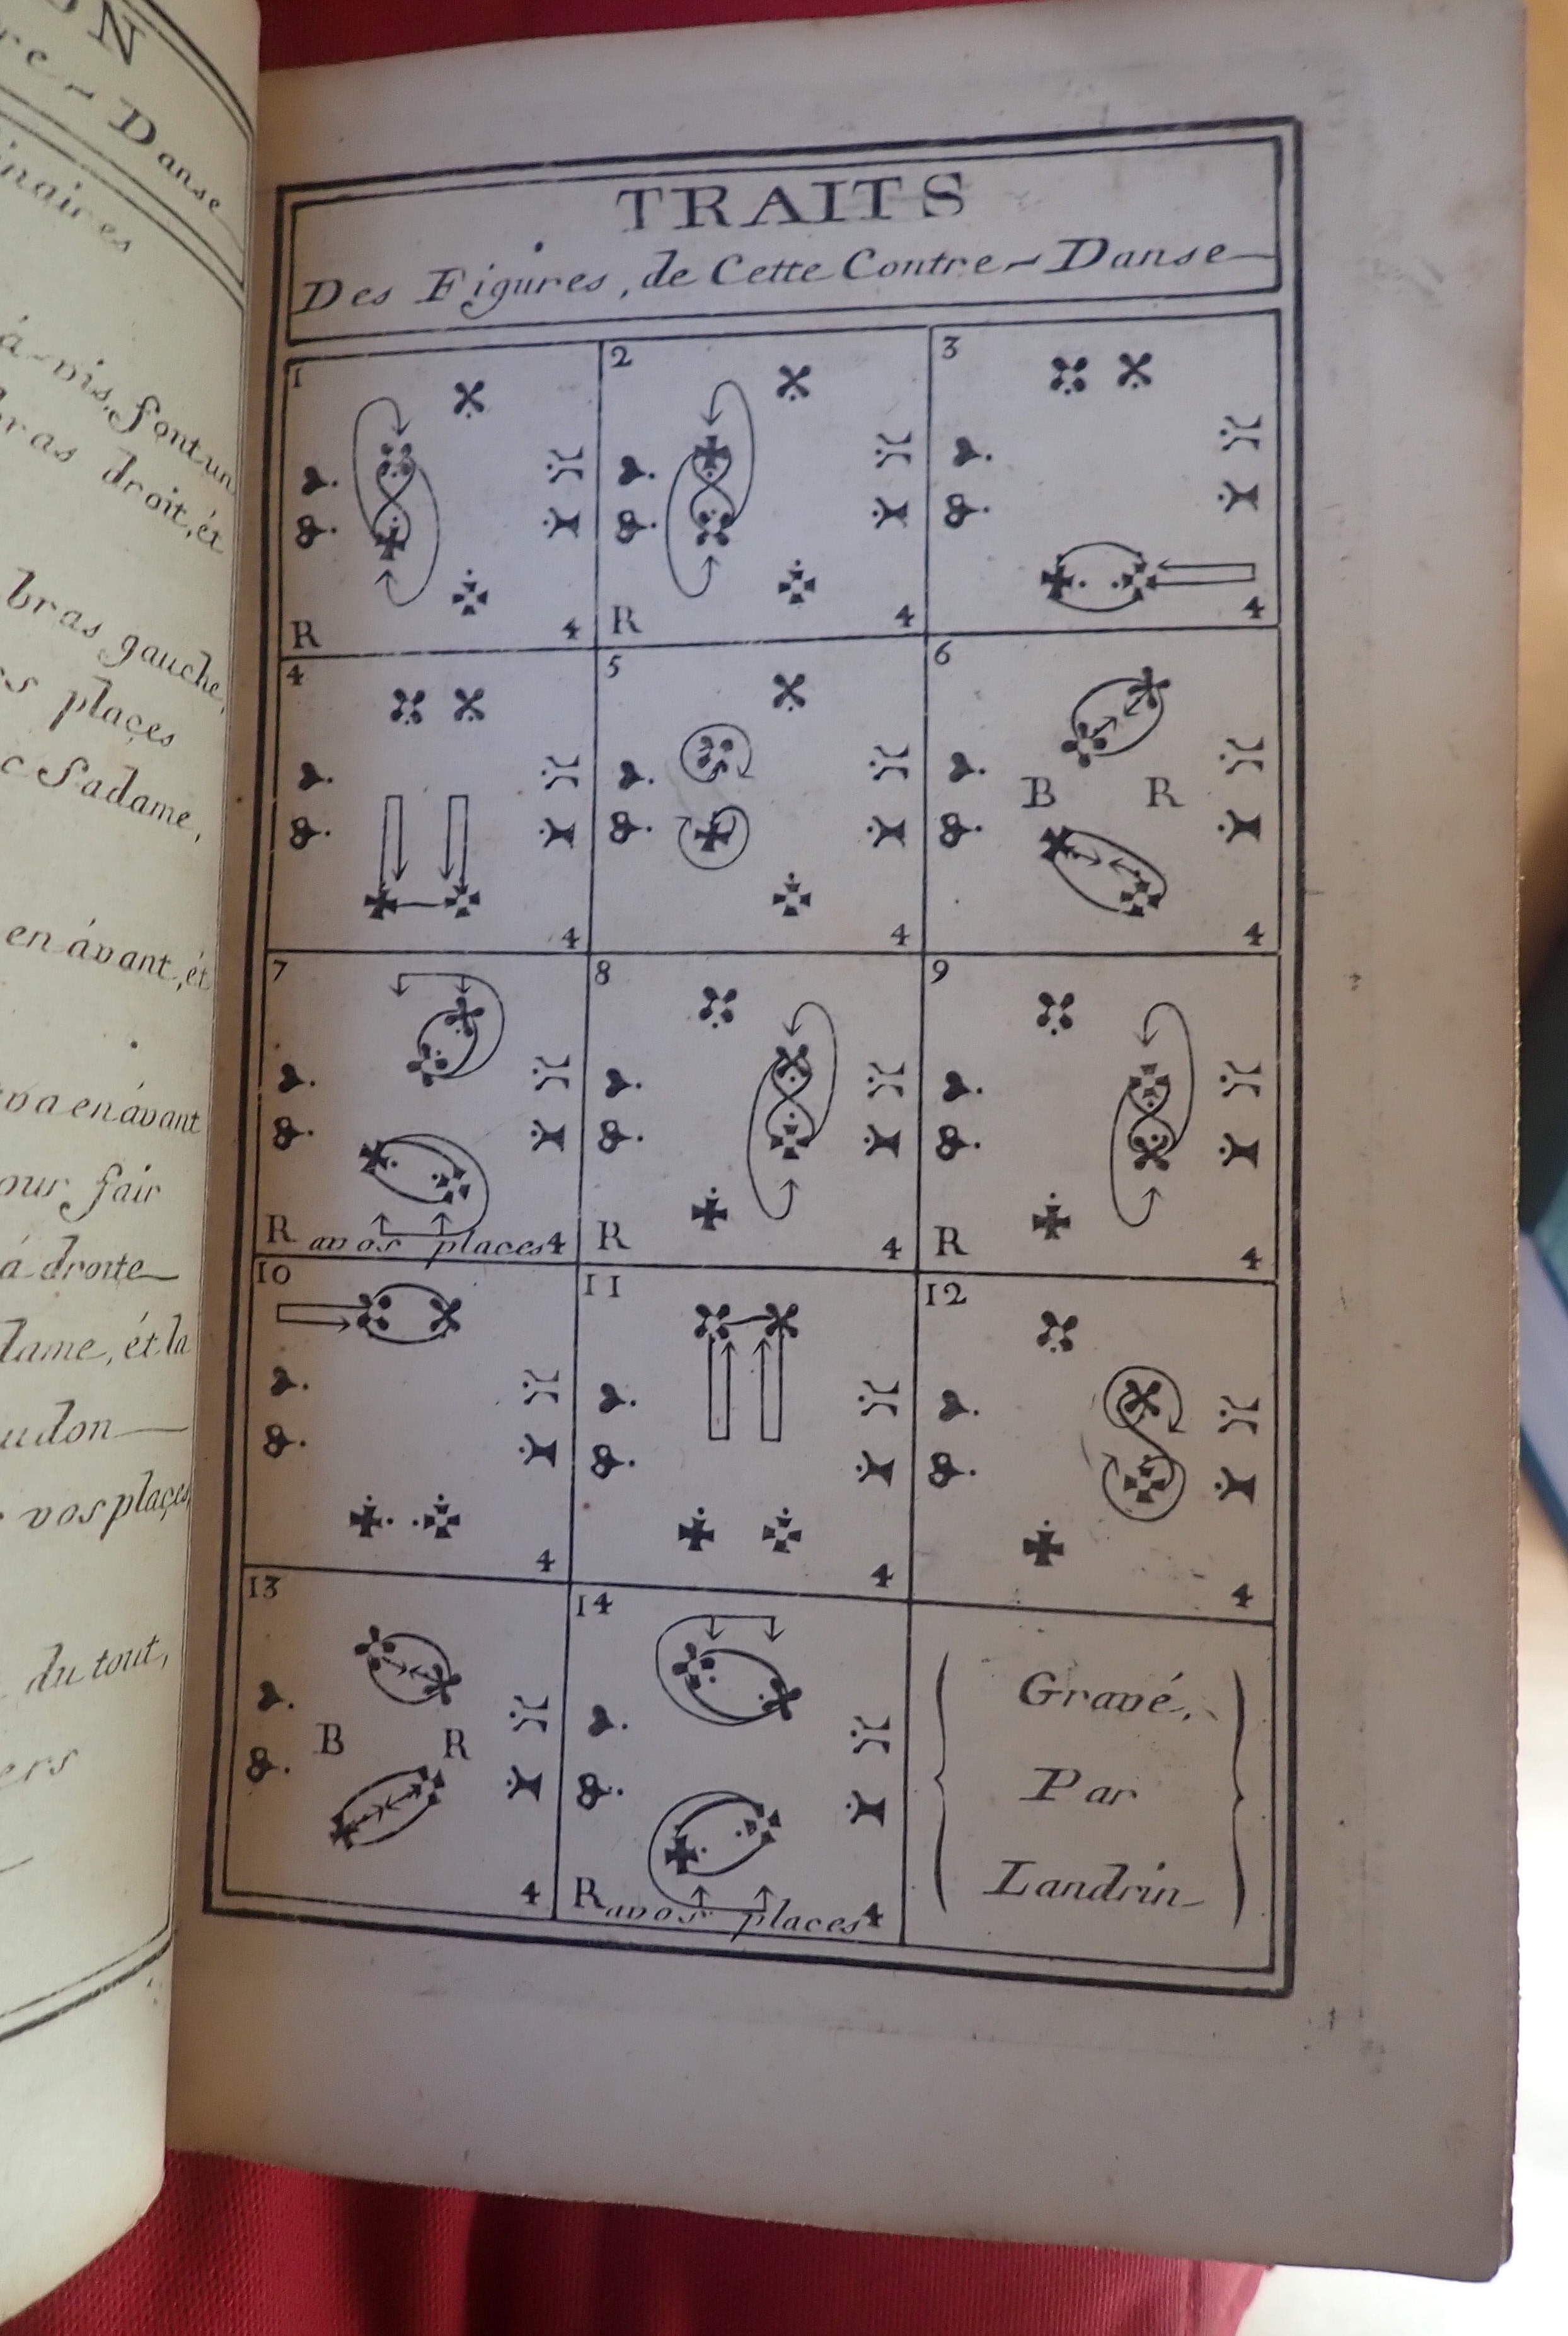 N
re - Danse
inaires
á-vis, font un
bras droit, ét
bras gauche,
es plaçes
c Sadame,
en ávant, ét
va en ávant
our fair
á droite
dame, ét la
udon
vos plaçes
du tout,
ers
TRAITS
Des Figures, de Cette Contre-Danse
1
R 4
2
R 4
3
4
4
4
5
4
6
B R
4
7
R avos places 4
8
R 4
9
R 4
10
4
11
4
12
4
13
B R
4
14
R avos places 4
Gravé,
Par
Landrin